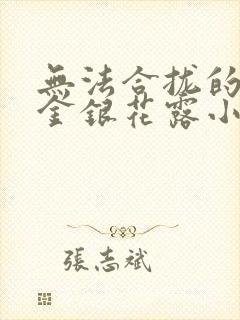 無法合拢的
金銀花露小
張志斌